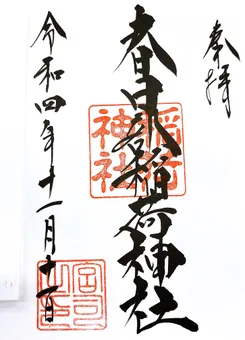 奉拝
春日 稲荷神社
稲荷
神社
令和四年十一月十一日
宮司
之印